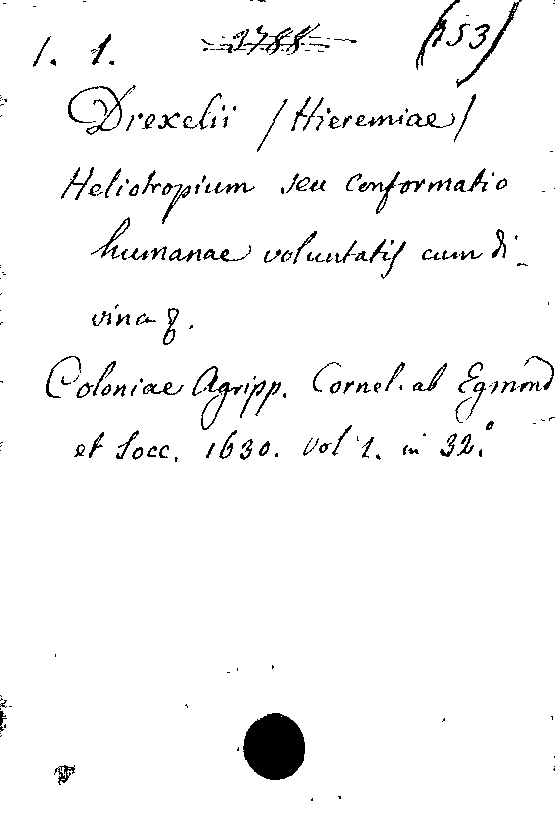 1. 1. 3788 (153)
Drexelii /Hieremiae/
Heliotropium seu conformatio
humanae voluntatis cum di-
vina
Coloniae Agripp. Cornel. ab Egmond
et Socc. 1630. vol 1. in 32.°